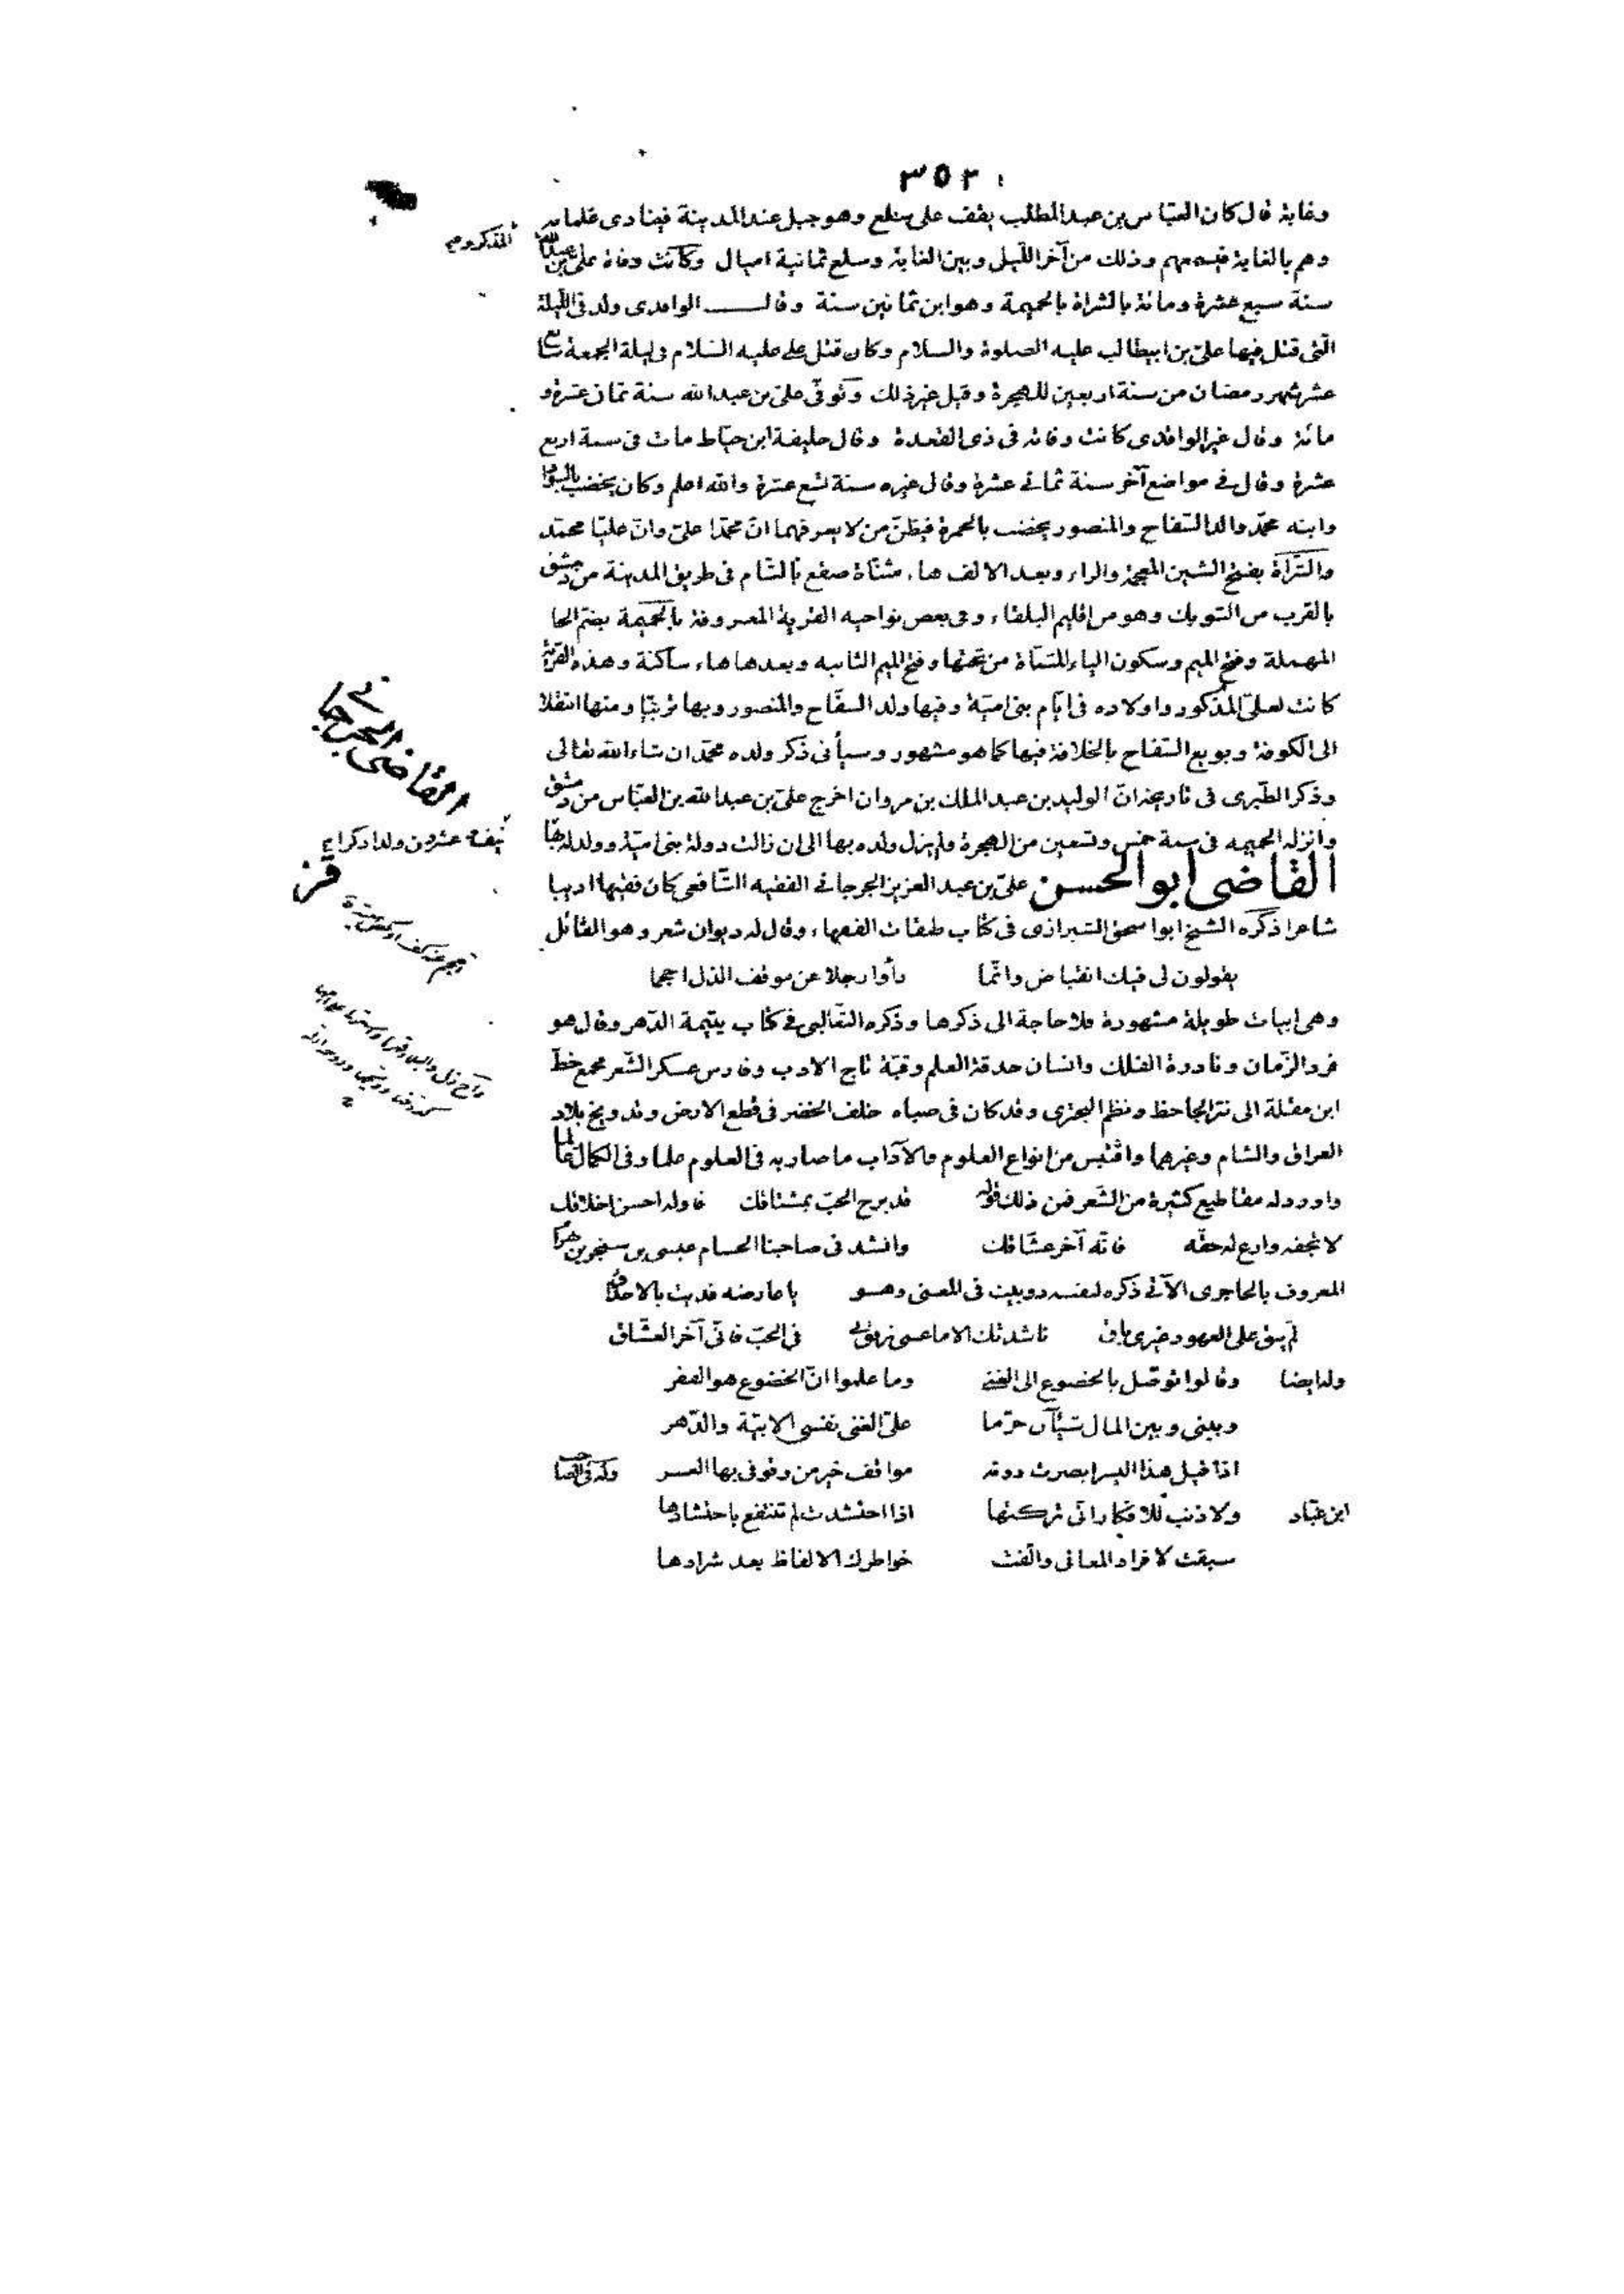 ٣٥٢
وغاية قال كان العباس بن عبد المطلب يقف على سلع وهو جبل عند المدينة فينادى غلمانه
وهم بالغابة فيسمعهم وذلك من آخر الليل وبين الغابة وسلع ثمانية اميال وكانت وفاة على بن عبد الله
المذكور
سنة سبع عشرة ومائة بالشراة بالحميمة وهو ابن ثمانين سنة وقال الواقدى ولد فى الليلة
التى قتل فيها على بن ابيطالب عليه الصلوة والسلام وكان قتل على عليه السلام فى ليلة الجمعة سابع
عشر شهر رمضان من سنة اربعين للهجرة وقيل غير ذلك وتوفّى على بن عبد الله سنة ثمان عشرة و
مائة وقال غير الواقدى كانت وفاته فى ذى القعدة وقال خليفة ابن خياط مات فى سنة اربع
عشرة وقال فى مواضع آخر سنة ثمانى عشرة وقال غيره سنة تسع عشرة والله اعلم وكان يخضب بالسواد
وابنه محمّد والد السّفاح والمنصور يخضب بالحمرة فيظنّ من لا يعرفهما انّ محمّدا علىّ وانّ عليّا محمّد
والشراة بفتح الشين المعجمة والراء وبعد الالف هاء مثنّاة صقع بالشام فى طريق المدينة من دمشق
بالقرب من الشوبك وهو من اقليم البلقاء وفى بعض نواحيه القرية المعروفة بالحميمة بضم الحا
المهملة وفتح الميم وسكون الياء المثنّاة من تحتها وفتح الميم الثانيه وبعدها هاء ساكنة وهذه القرية
كانت لعلىّ المذكور واولاده فى ايّام بنى اميّة وفيها ولد السفّاح والمنصور وبها تربّيا ومنها انتقلا
الى الكوفة وبويع السّفاح بالخلافة فيها كما هو مشهور وسيأتى ذكر ولده محمّد ان شاء الله تعالى
وذكر الطّبرى فى تاريخه انّ الوليد بن عبد الملك بن مروان اخرج علىّ بن عبد الله بن العبّاس من دمشق
وانزله الحميمه فى سنة خمس وتسعين من الهجرة ولم يزل ولده بها الى ان زالت دولة بنى اميّة وولد له بها
نيف وعشرون ولدا ذكرا
القاضى الجرجانى
القاضى ابو الحسن علىّ بن عبد العزيز الجرجانى الفقيه الشّافعى كان فقيها اديبا
شاعرا ذكره الشيخ ابو اسحق الشيرازى فى كتاب طبقات الفقهاء وقال له ديوان شعر وهو القائل
يقولون لى فيك انقباض وانّما رأوا رجلا عن موقف الذل احجما
وهى ابيات طويلة مشهورة فلا حاجة الى ذكرها وذكره الثعالبى فى كتاب يتيمة الدّهر وقال هو
فرد الزّمان ونادرة الفلك وانسان حدقة العلم وقبّة تاج الادب وفارس عسكر الشّعر يجمع خطّ
ابن مقلة الى نثر الجاحظ ونظم البحترى وقد كان فى صباه خلف الخضر فى قطع الارض وتدويخ بلاد
العراق والشام وغيرهما واقتبس من انواع العلوم والآداب ما صار به فى العلوم علما وفى الكمال عالما
واورد له مقاطيع كثيرة من الشّعر فمن ذلك قوله قد برح الحبّ بمشتاقك فاوله احسن اخلاقك
لا تجفه وارع له حقّه فانّه آخر عشّاقك وانشد فى صاحبنا الحسام عيسى بن سنجر بن بهرام
المعروف بالحاجرى الآتى ذكره لنفسه دوبيت فى المعنى وهو يا عارضه فديت بالاحداق
لم يبق على العهود غيرى باق ناشدتك الا ما عسى ترفق بى فى الحبّ فانّى آخر العشّاق
وله ايضا وقالوا توصّل بالخضوع الى الغنى وما علموا انّ الخضوع هو الفقر
وبينى وبين المال شيئان حرّما علىّ الغنى نفسى الابيّة والدّهر
اذا قيل هذا اليسر ابصرت دونه مواقف خير من وقوفى بها العسر وله فى الصاحب
ابن عبّاد ولا ذنب للافكار انى تركتها اذا احتشدت لم تنتفع باحتشادها
سبقت لافراد المعانى والّفت خواطرك الالفاظ بعد شرادها